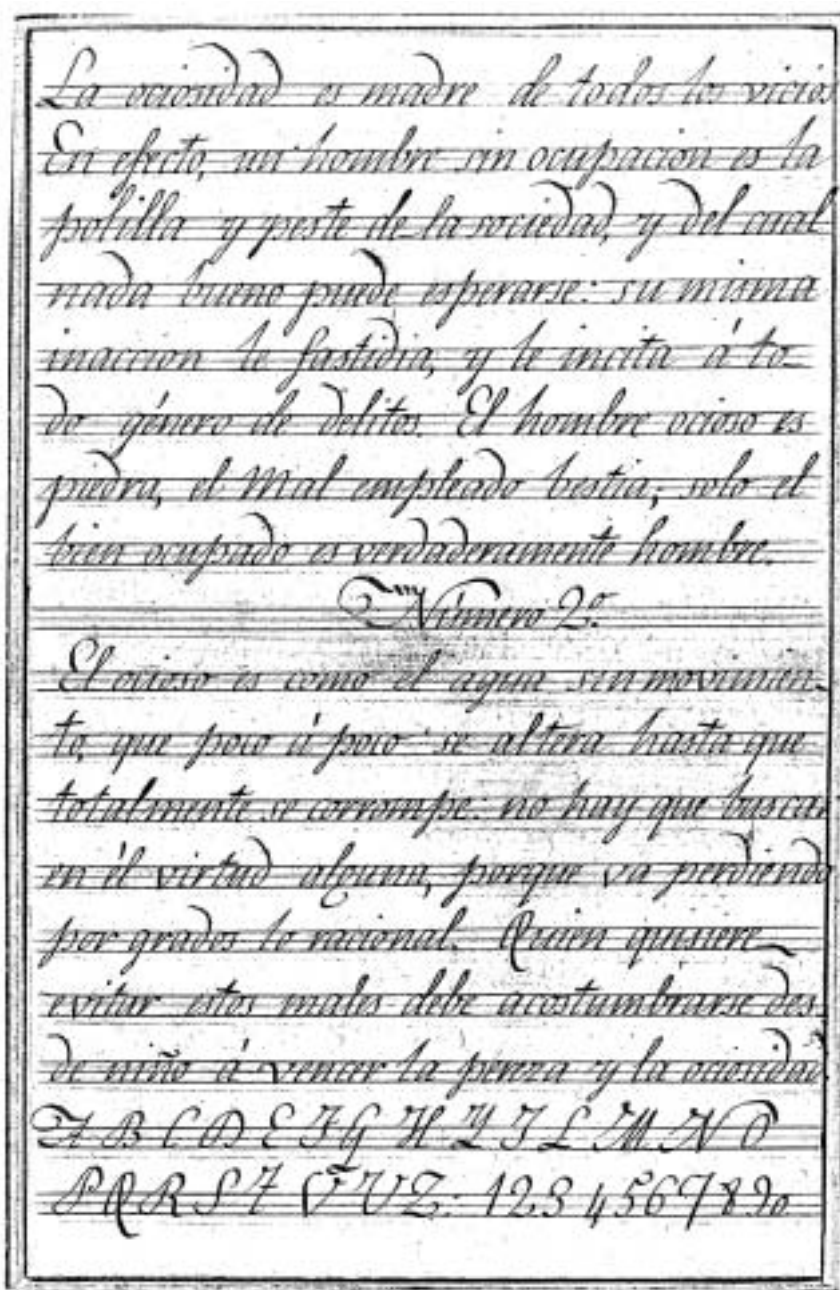 La ociosidad es madre de todos los vicios
En efecto, un hombre sin ocupacion es la
polilla y peste de la sociedad, y del cual
nada bueno puede esperarse: su misma
inaccion le fastidia, y le incita á to-
do género de delitos. El hombre ocioso es
piedra, el Mal empleado bestia; solo el
bien ocupado es verdaderamente hombre.
Número 2º
El ocioso es como el agua sin movimien-
to, que poco á poco se altera hasta que
totalmente se corrompe: no hay que buscar
en él virtud alguna, porque va perdiendo
por grados lo racional. Quien quisiere
evitar estos males debe acostumbrarse des-
de niño á vencer la pereza y la ociosidad
A B C D E F G H Y J L M N O
P Q R S T V U Z: 1 2 3 4 5 6 7 8 9 0